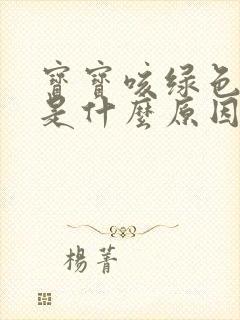 寶寶咳綠色
是什麼原因
楊菁